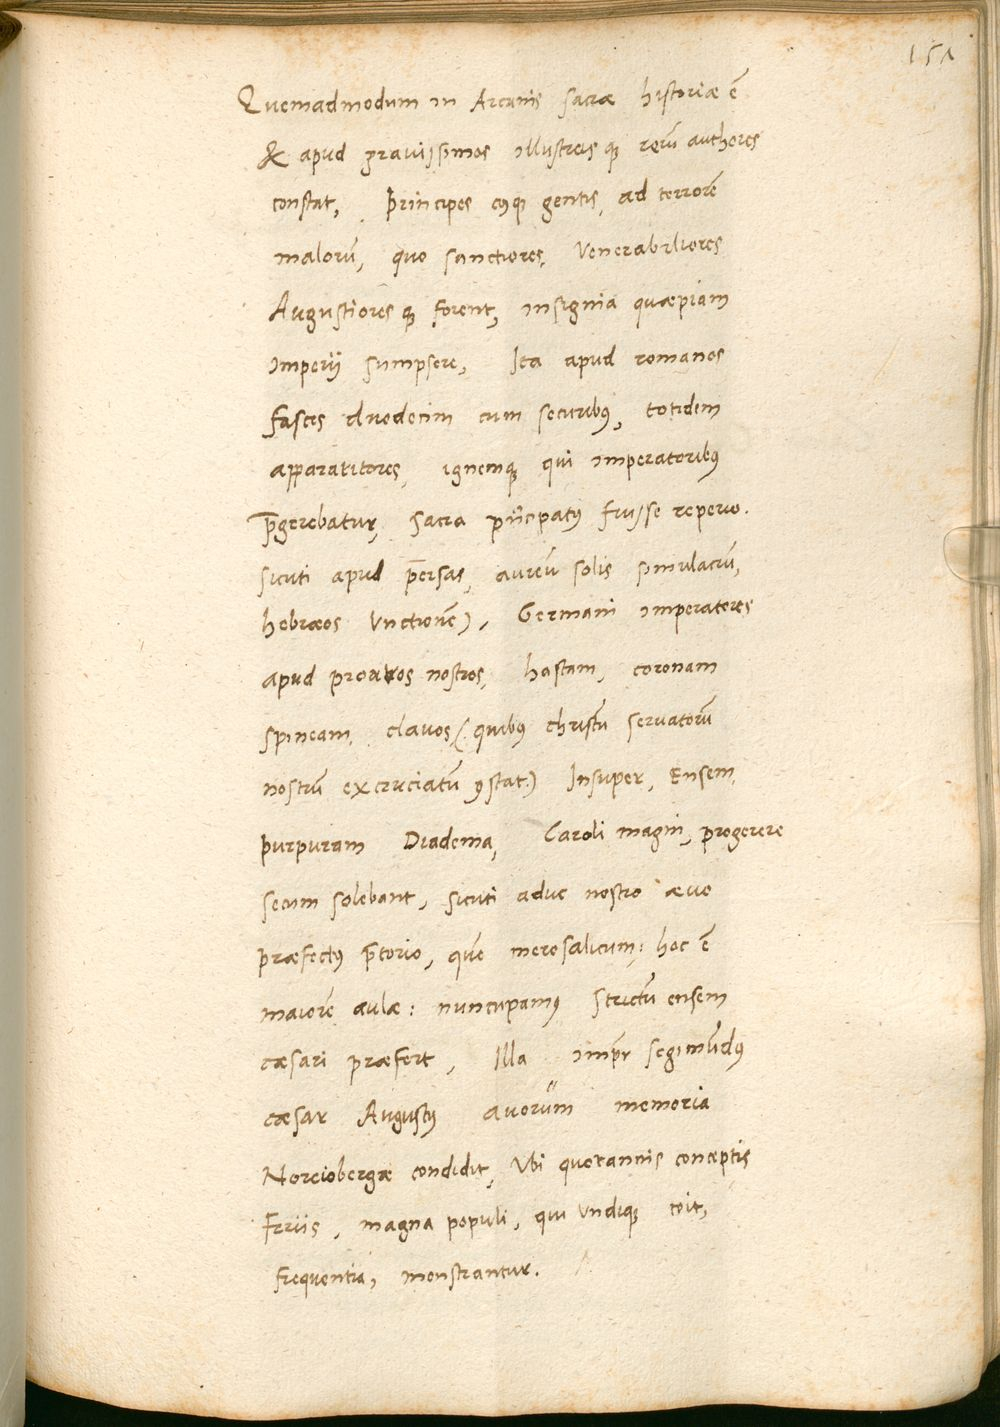 151
Quemadmodum in Arcanis sacræ historiæ ē
& apud graviſsimos illustreis qꝫ rerū authores
constat, Principes cuiꝰqꝫ gentis, ad terrorē
malorū, quo sanctiores, Venerabiliores
Augustiores qꝫ forent, insignia quæpiam
imperij sumpsere, Ita apud romanos
fasces duodecim cum securibꝰ, totidem
apparatitores, ignemqꝫ qui imperatoribꝰ
p̄gerebatur, sacra pn̄cipatꝰ fuiſse reperio.
sicuti apud persas, aureū solis simulacrū,
hebræos Vnctionē), Germani imperatores
apud proavos nostros, hastam, coronam
spineam, clavos (quibꝰ christū servatorū
nostrū excruciatū ꝯstat.) Insuper, Ensem,
purpuram Diadema, Caroli magni, progerere
secum solebant, sicuti aduc nostro ævo
præfectꝰ p̄torio, quē merosalicum: hoc ē
maiorē aulæ: nuncupamꝰ strictū ensem
cæsari præfert, Illa imp̄r segimūdꝰ
cæsar Augustꝰ avorum memoria
Noreiobergæ condidit, Vbi quotannis conceptis
Friis, magna populi, qui Vndiqꝫ coit,
frequentia, monstrantur.